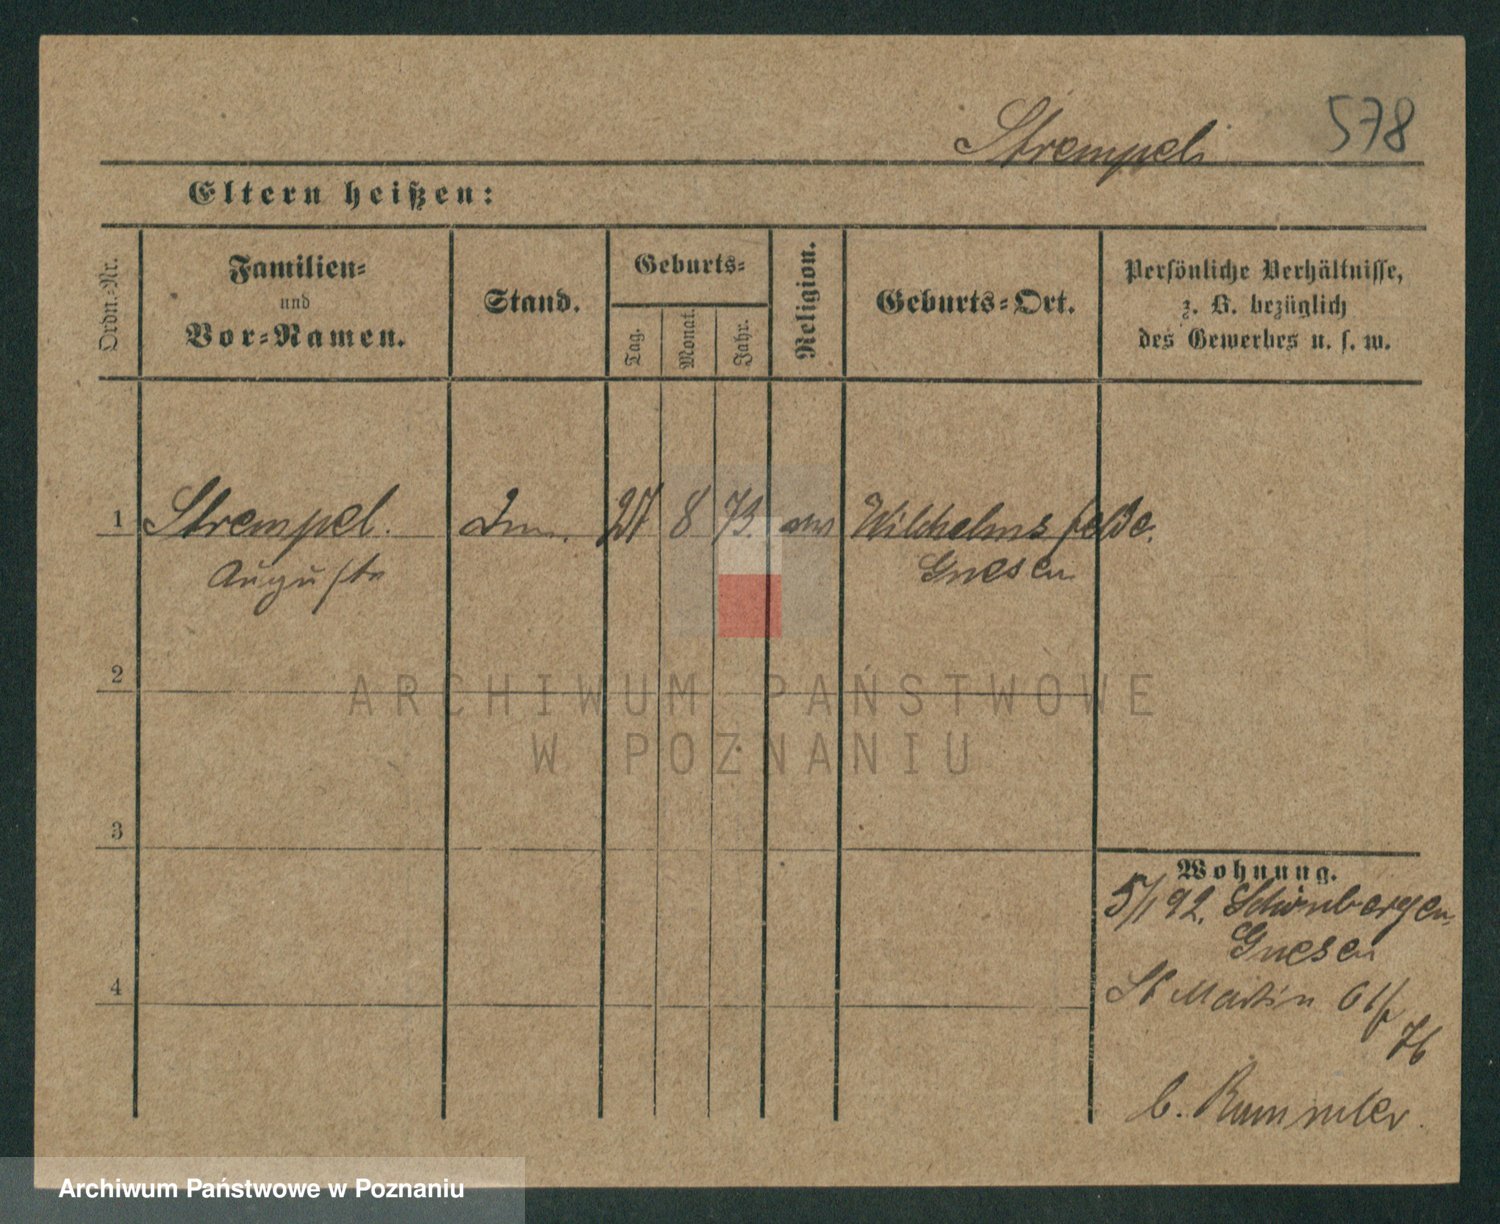 578
Strempel
Eltern heißen:
Ordn.-Nr.
Familien-
und
Vor-Namen.
Stand.
Geburts-
Tag.
Monat.
Jahr.
Religion.
Geburts-Ort.
Persönliche Verhältnisse,
z. B. bezüglich
des Gewerbes u. s. w.
1 Strempel. 8 73. Wilhelmsfelde.
Auguste Gnesen
2
ARCHIWUM PAŃSTWOWE
W POZNANIU
3
Wohnung.
5/1 92.
Gnesen
4
St Martin
76
b. Rummler.
Archiwum Państwowe w Poznaniu